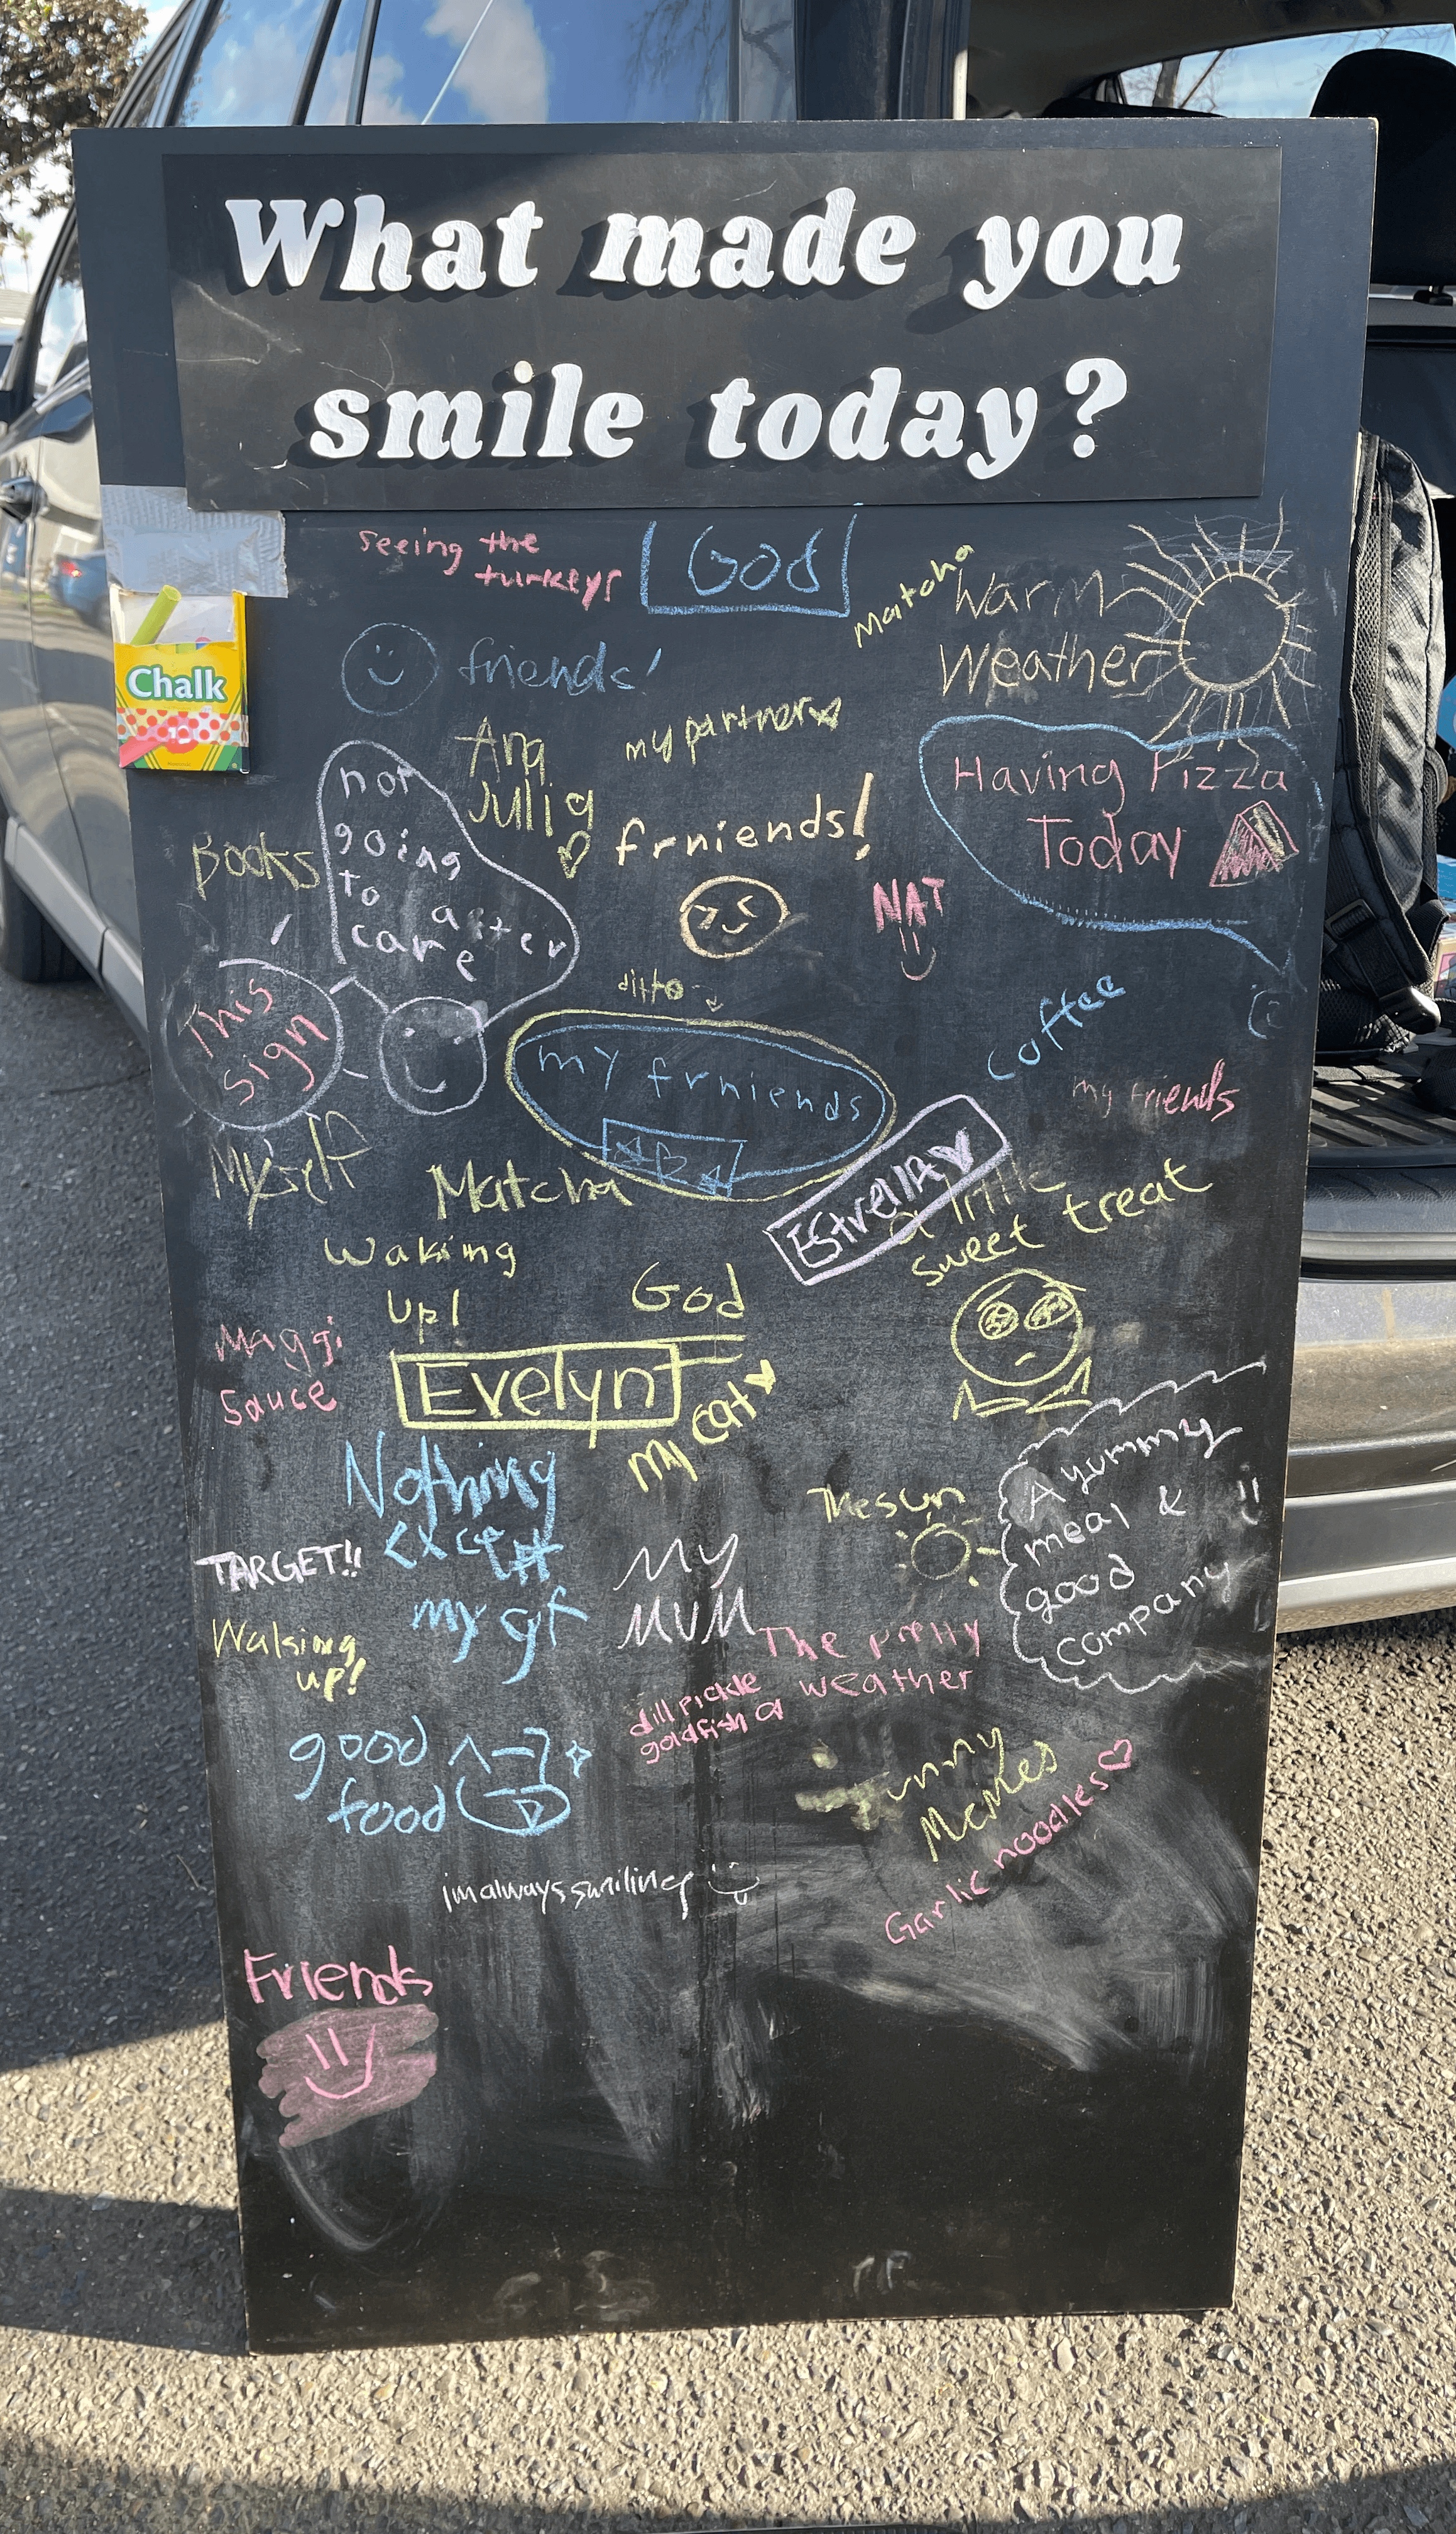 What made you
smile today?
seeing the
turkeys
God
Matcha
Warm
Weather
Chalk
friends!
my partner
Ana
Julia
Having Pizza
Today
not
going
to after
care
Books
frniends!
NAT
This
sign
ditto
my frniends
coffee
my friends
Myself
Matcha
Estrella
a little
sweet treat
Waking
up!
God
Maggi
Sauce
Evelyn
my cat
Nothing
except
my gf
The sun
A yummy
meal &
good
company
TARGET!!
MY
MUM
Waking
up!
The pretty
weather
dill pickle
goldfish
good
food
Funny
Memes
Garlic noodles
im always smiling
Friends